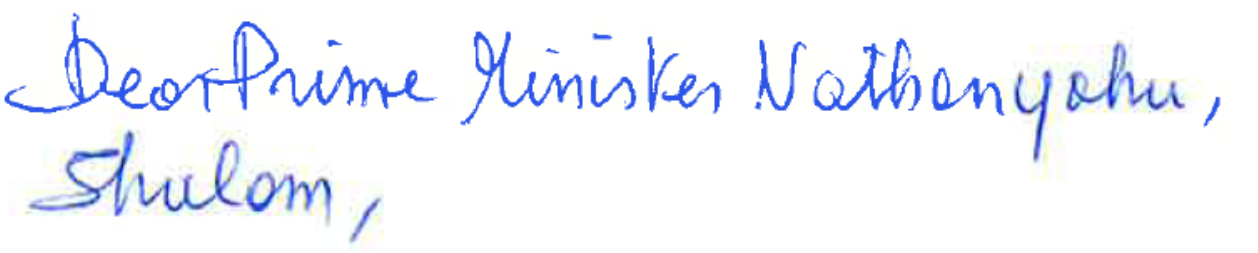 Dear Prime Minister Nathanyahu,
Shalom,